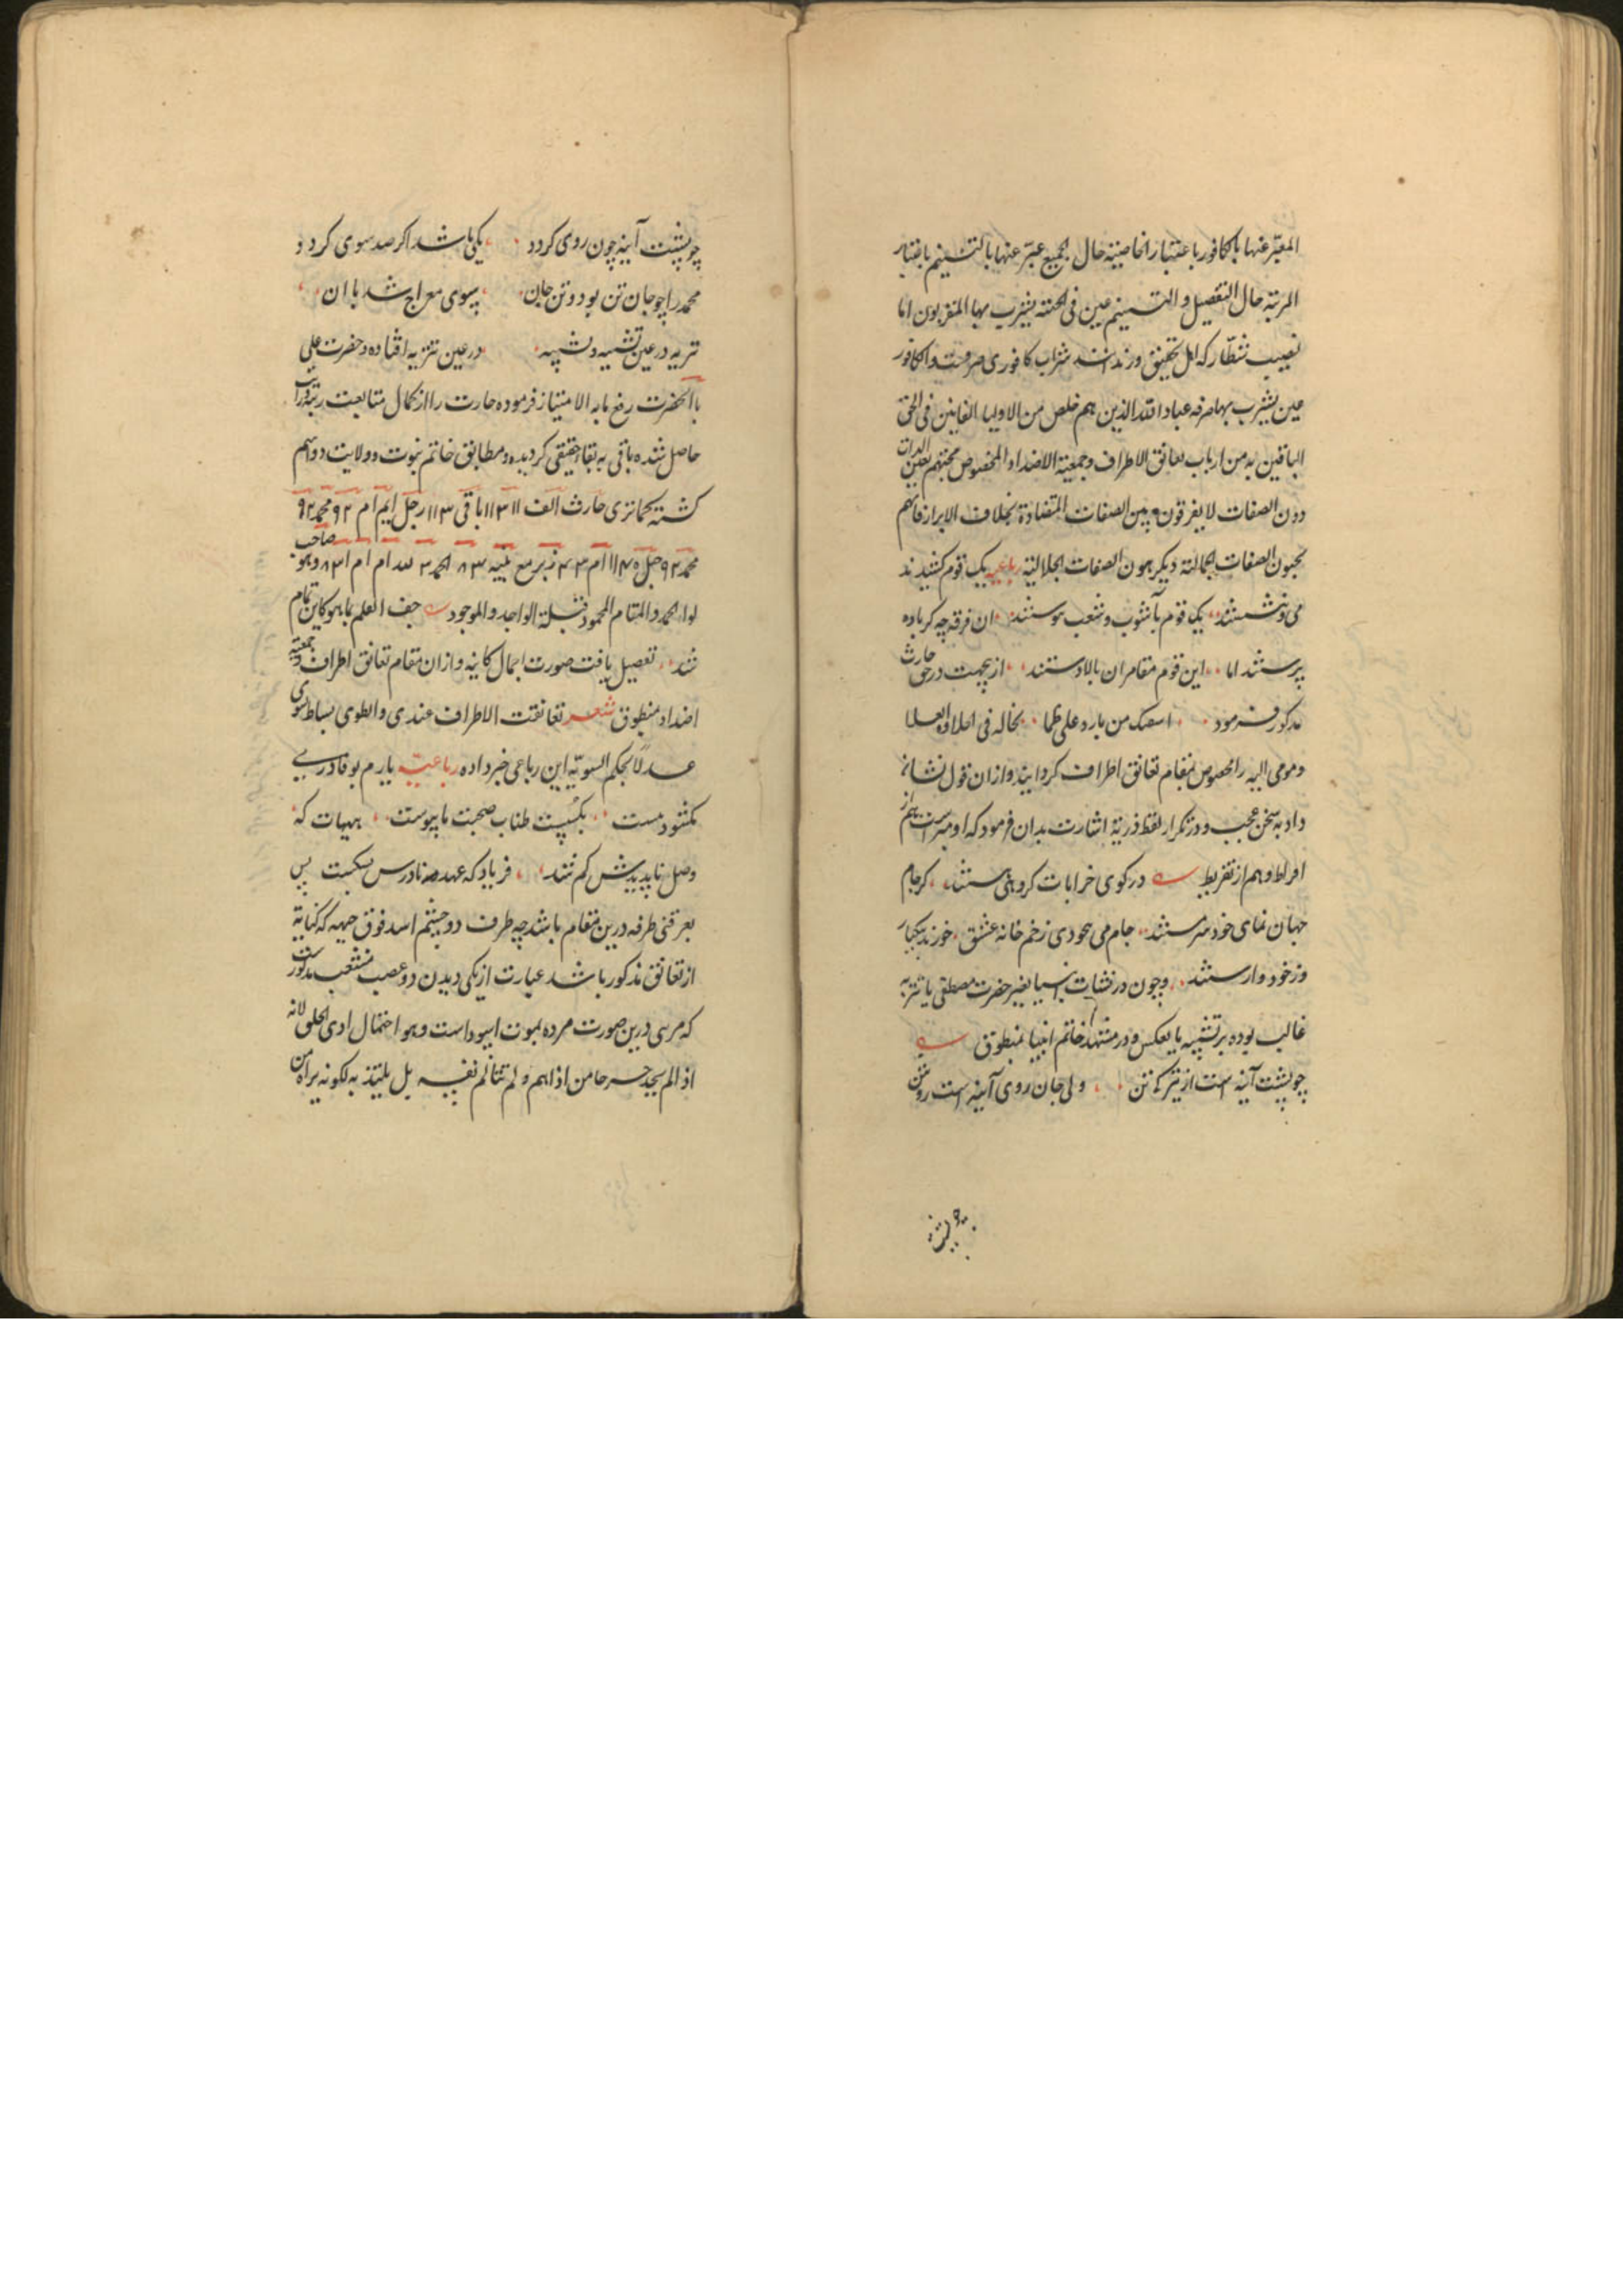 المعبّر عنها بالکافور باعتبار الخاصیته حال الجمیع عبّر عنها بالتسنیم باعتبار
المرتبة حال التفصیل و التسنیم عین فی الجنته یشرب بها المقربون اما
نصیب شطّار که اهل تحقیق ورندانند شراب کافوری صرفست و الکافور
عین یشرب بها صرفه عباد الله الذین هم خلص من الاولیا الفانین فی الحق
الباقین به من ارباب تعانق الاطراف و جمعیة الاضداد المخصوص محبتهم بعین الذات
دون الصفات لا یفرقون بین الصفات المتضادة بخلاف الابرار فانهم
یحبون الصفات الجمالتة ویکرهون الصفات الجلالیّة رباعیه یک قوم کشیدند
می و نشستند یک قوم بآشوب و شعب بوستند ان فرقه چه کر باده
پرستند اما این قوم مقامران بالادستند ازیجهت در حق حارث
مذکور فرمود اسقیک من بارد علی ظما تخاله فی الحلاوة العسلا
و مومی الیه را مخصوص بمقام تعانق اطراف کردانید و ازان قول نشانه
داد به سخن عجب و در تکرار لفظ ذریة اشارت بدان فرمود که او مبراست هم از
افراط و هم از تفریط در کوی خرابات کروهی مستند کز جام
جهان نمای خود سرمستند جام می بیخودی زخم خانه عشق خورند بیکبار
وز خود وارستند و چون در نشات انبیا بغیر حضرت مصطفی یا تنزیه
غالب بوده بر تشبیه یا بعکس و در مشهد خاتم انبیا بمنطوق
چو پشت آینه است از تیرکی تن ولی جان روی آینه است روشن
چو پشت
چو پشت آینه چون روی کردد یکی باشد اکر صد سوی کردد
محمد را چو جان تن بود و تن جان بسوی معراج شد با ان
تنزیه در عین تشبیه و تشبیه در عین تنزیه افتاده و حضرت علی
با آنحضرت رفع ما به الامتیاز فرموده حارث را از کمال متابعت رتبه وراثت
حاصل شده باقی به بقاء حقیقی کردیده و مطابق خاتم نبوت و ولایت دوایم
کشته کماتری حارث الف ۱۱ ۳ ۱۱ باقی ۱۱۳ رجل ایم ام ۹۲ محمد ۹۲
لواء الحمد و المقام المحمود قبلة الواجد و الموجود جف القلم بما هو کاین تمام
شد تفصیل یافت صورت اجمال کاینه و ازان مقام تعانق اطراف و جمعیته
اضداد منطوق شعر تعانقت الاطراف عندی و انطوی بساط السوی
عدلاً بحکم السویة این رباعی خبر داده رباعیه یارم بوفا در بی
بکشود مست بکسیت طناب صحبت ما پیوست هیهات که
وصل ناپدیدش کم شد فریاد که عهد نادرس بشکست پس
بعرقنی طرفه درین مقام باشد چه طرف دو چشم اسد فوق جبهه که کنایة
از تعانق مذکور باشد عبارت از یکی دیدن دو عصب منشعب مذکورست
که مرسی درین صورت مرده بموت اسود است و هو احتمال اذی الخلق لانه
اذا لم یجد حرجا من اذاهم و لم تتالم نفسه بل یلتذ به لکونه یراه من